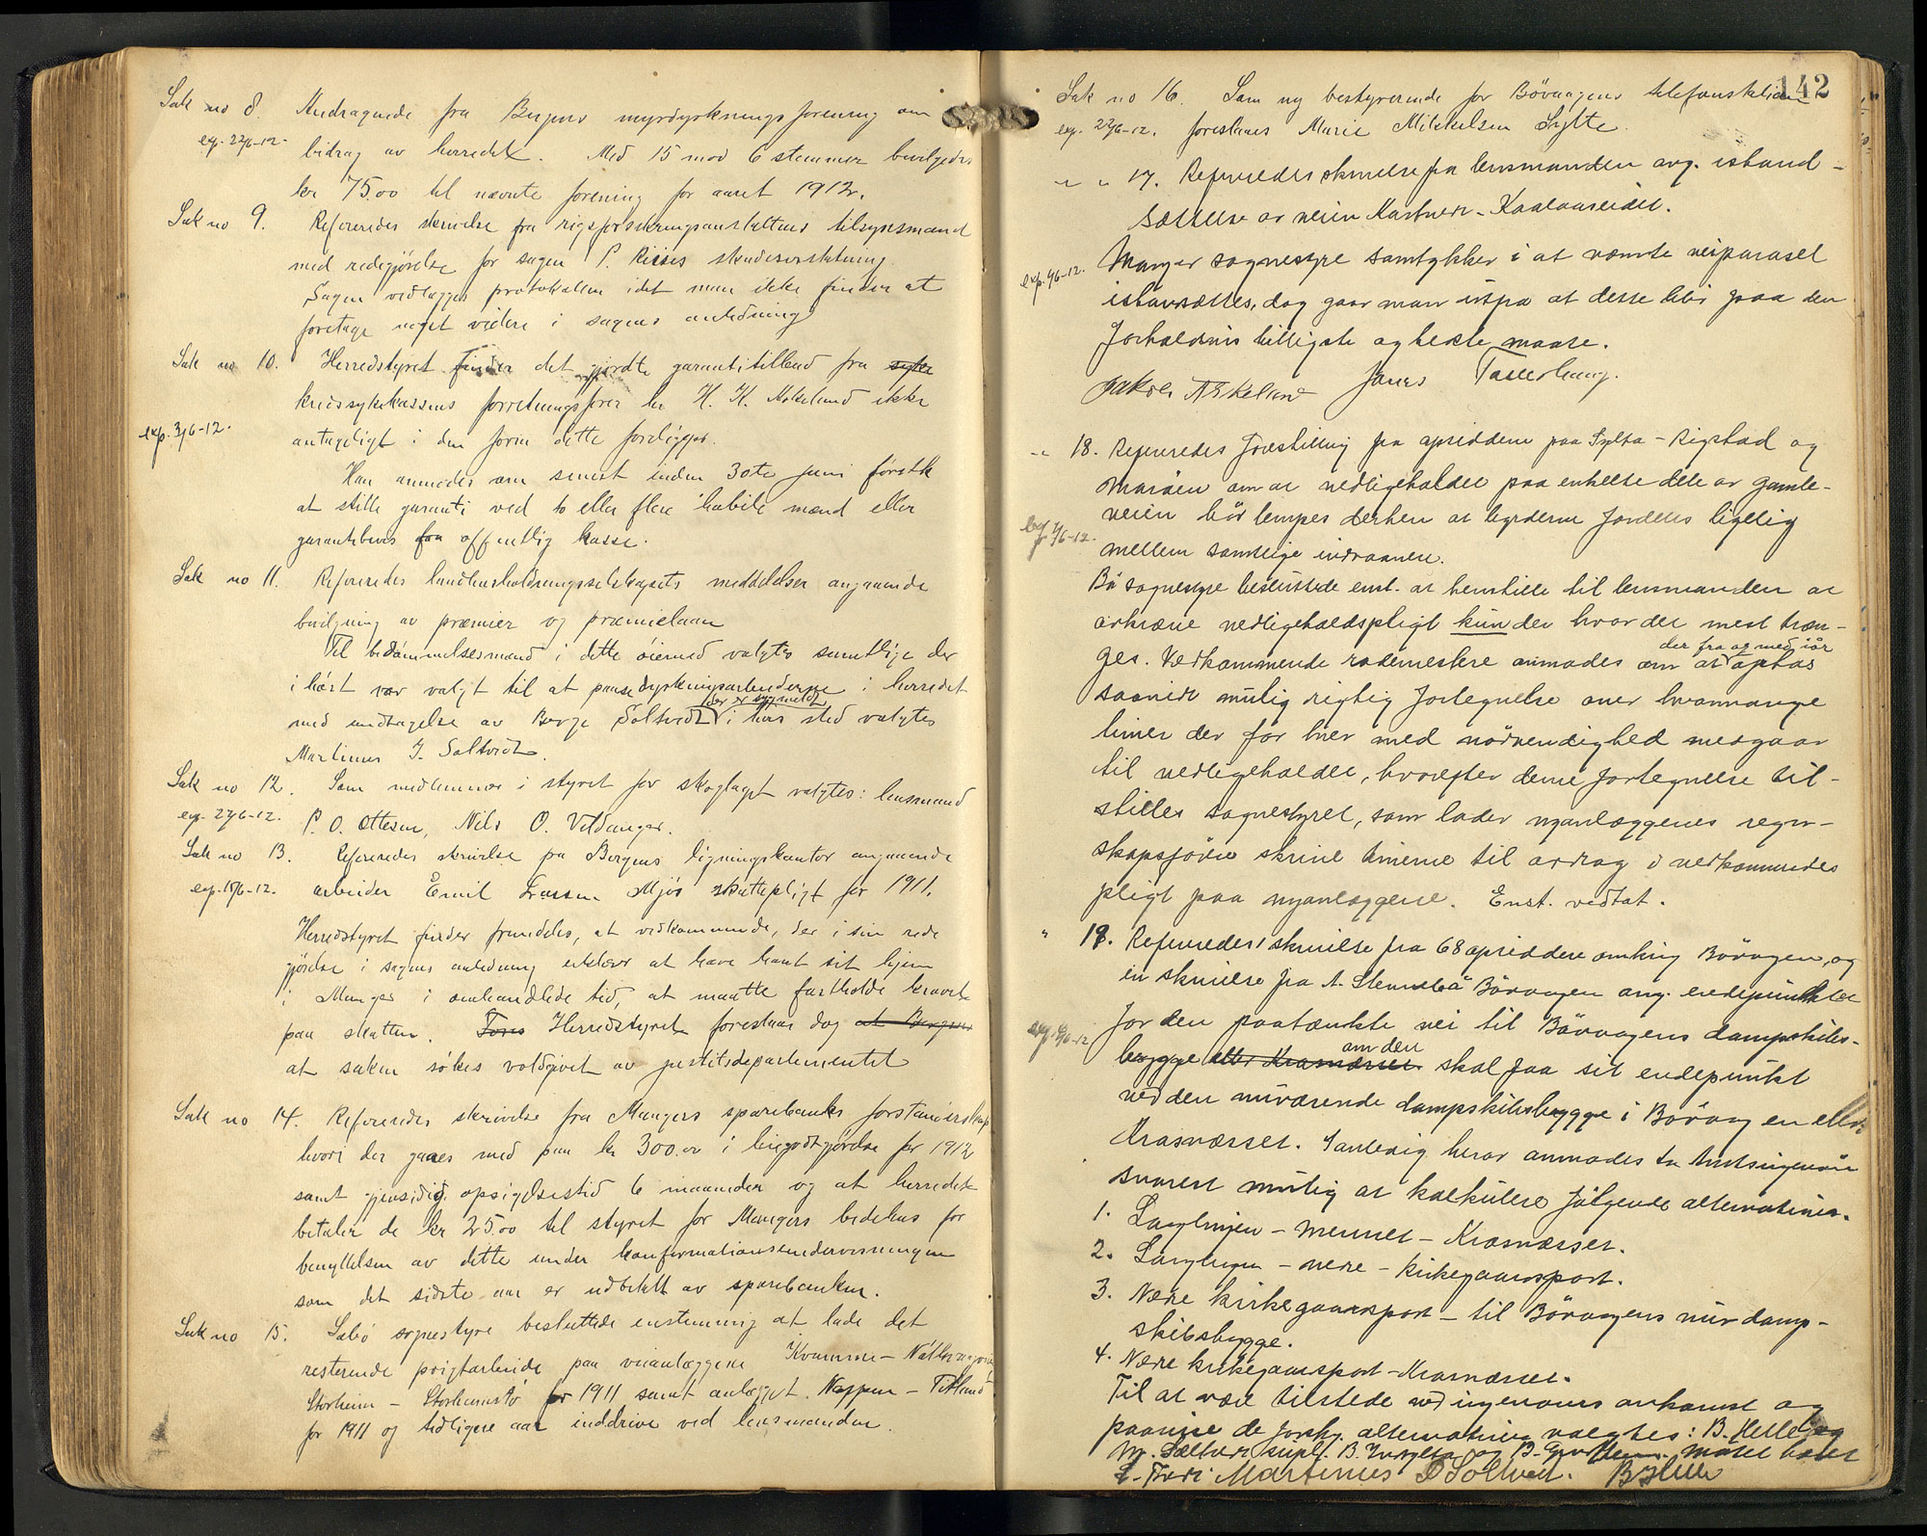 Sak no 8. Andragende fra Bergens myrdyrkningsforening om
exp. 22/6-12. bidrag av herredet. Med 15 mod 6 stemmer bevilgedes
kr 75.00 til nævnte forening for aaret 1912.
Sak no 9. Refereredes skrivelse fra rigsforsikringsanstaltens tilsynsmand
med redegjörelse for sagen P. Riises skadeserstatning.
Sagen vedlægges protokollen idet man ikke finder at
foretage noget videre i sagens anledning
Sak no 10. Herredstyret finder det gjordte garantitilbud fra syke
kredssykekassens forretningsförer hr H. H. Askeland ikke
exp. 3/6-12. antageligt i den form dette foreligger.
Han anmodes om senest inden 30te juni förstk
at stille garanti ved to eller flere habile mænd eller
garantibevis fra offentlig kasse.
Sak no 11. Refereredes landhusholdningsselskapets meddelelser angaaende
bevilgning av præmier og præmielaan
Til bedömmelsesmænd i dette öiemed valgtes samtlige der
i höst var valgt til at paase dyrkningsarbeiderne i herredet
der er sygmeldt
med undtagelse av Berge Soltvedt i hvis sted valgtes
Martinus J. Soltvedt.
Sak no 12. Som medlemmer i styret for skoglaget valgtes: lensmand
exp. 27/6-12. P. O. Ottesen, Nils O. Vetdanger.
Sak no 13. Refereredes skrivelse fra Bergens ligningskontor angaaende
exp. 15/6-12. arbeider Emil Larsen Mjös skattepligt for 1911.
Herredstyret finder fremdeles, at vedkommende, der i sin rede
gjörelse i sagens anledning erklærer at have havt sit hjem
i Manger i omhandlede tid, at maatte fastholde kravet
paa skatten. Fors Herredstyret foreslaar dog at Bergens
at saken sökes voldgivet av justitsdepartementet
Sak no 14. Refereredes skrivelse fra Mangers sparebanks forstanderskap
hvori der gaaes med paa kr 300.00 i leiegodtgjörelse for 1912
samt gjensidig opsigelsestid 6 maaneder og at herredet
betaler de kr 25.00 til styret for Mangers bedehus for
benyttelsen av dette under konfirmationsundervisningen
som det sidste aar er udbetalt av sparebanken.
Sak no 15. Sæbö sognestyre besluttede enstemmig at lade det
resterende pligtarbeide paa veianlæggene Kvamme –
Storheim – Storheimstö for 1911 samt anlægget Noppen – Titland
for 1911 og tidligere aar inddrive ved lensmanden.
142
Sak no 16. Som ny bestyrerinde for Bövaagens telefonstation
exp. 22/6-12. foreslaaes Marie Mikkelsen Sylte.
" " 17. Refereredes skrivelse fra lensmanden ang. istand-
sættelse av veien Kartveit – Kaalaaseidet.
exp. 4/6-12. Manger sognestyre samtykker i at nævnte veiparasel
istandsættes, dog gaar man ut fra at dette blir paa den
forholdsvis billigste og bedste maate.
Jakob Askeland Jones Toskedung.
" 18. Refereredes forestilling fra opsiddere paa Sylta – Rigstad og
Maröen om at vedligeholdet paa enkelte dele av gamle-
exp 4/6-12. veien bör lempes derhen at byrderne fordeles ligelig
mellem samtlige indvaanere.
Bö sognestyre besluttede enst. at henstille til lensmanden at
avkræve vedligeholdspligt kun der hvor det mest træn-
der fra og med iaar
ges. Vedkommende rodemestere anmodes om at optas
saavidt mulig rigtig fortegnelse over hvormange
timer der for hver med nödvendighed medgaar
til vedligeholdet, hvorefter denne fortegnelse til-
stilles sognestyret, som lader nyanlæggenes regn-
skapsförer skrive timerne til avdrag i vedkommendes
pligt paa nyanlæggene. Enst. vedtat.
" 19. Refereredes skrivelse fra 68 opsiddere omkring Bövaagen, og
en skrivelse fra A. Stensbö Bövaagen ang. endepunktet
exp. 6/6-12 for den paatænkte vei til Bövaagens dampskibs-
om den
brygge eller Krosnæsset skal faa sit endepunkt
ved den nuværende dampskibsbrygge i Bövaagen eller
Krosnæsset. I anledning herav anmodes hr Amtsingeniör
snarest mulig at kalkulere fölgende alternativer.
1. Langlinjen – Mennes – Krosnæsset.
2. Langlinjen – nedre – kirkegaardsport.
3. Nedre kirkegaardsport – til Bövaagens nuv damp-
skibsbrygge.
4. Nedre kirkegaardsport – Krosnæsset.
Til at være tilstede ved ingeniörens ankomst og
paavise de forskj. alternativer valgtes: B. Helle og
M. Soltvedt supl. B. og B. Mötet hævet
Martinus Soltvedt. B Helle